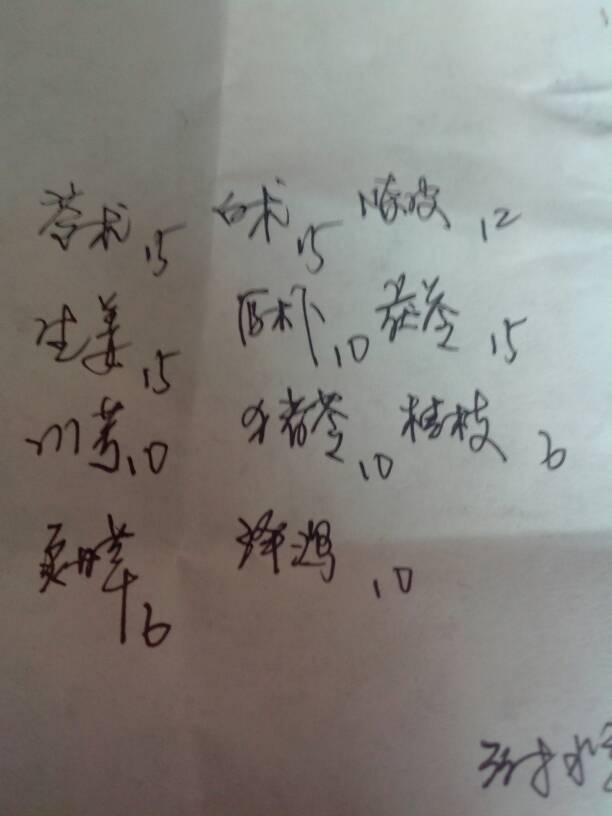 苍术15 白术15 陈皮12
生姜15 厚朴10 茯苓15
川芎10 猪苓10 桂枝6
炙甘草6 泽泻10